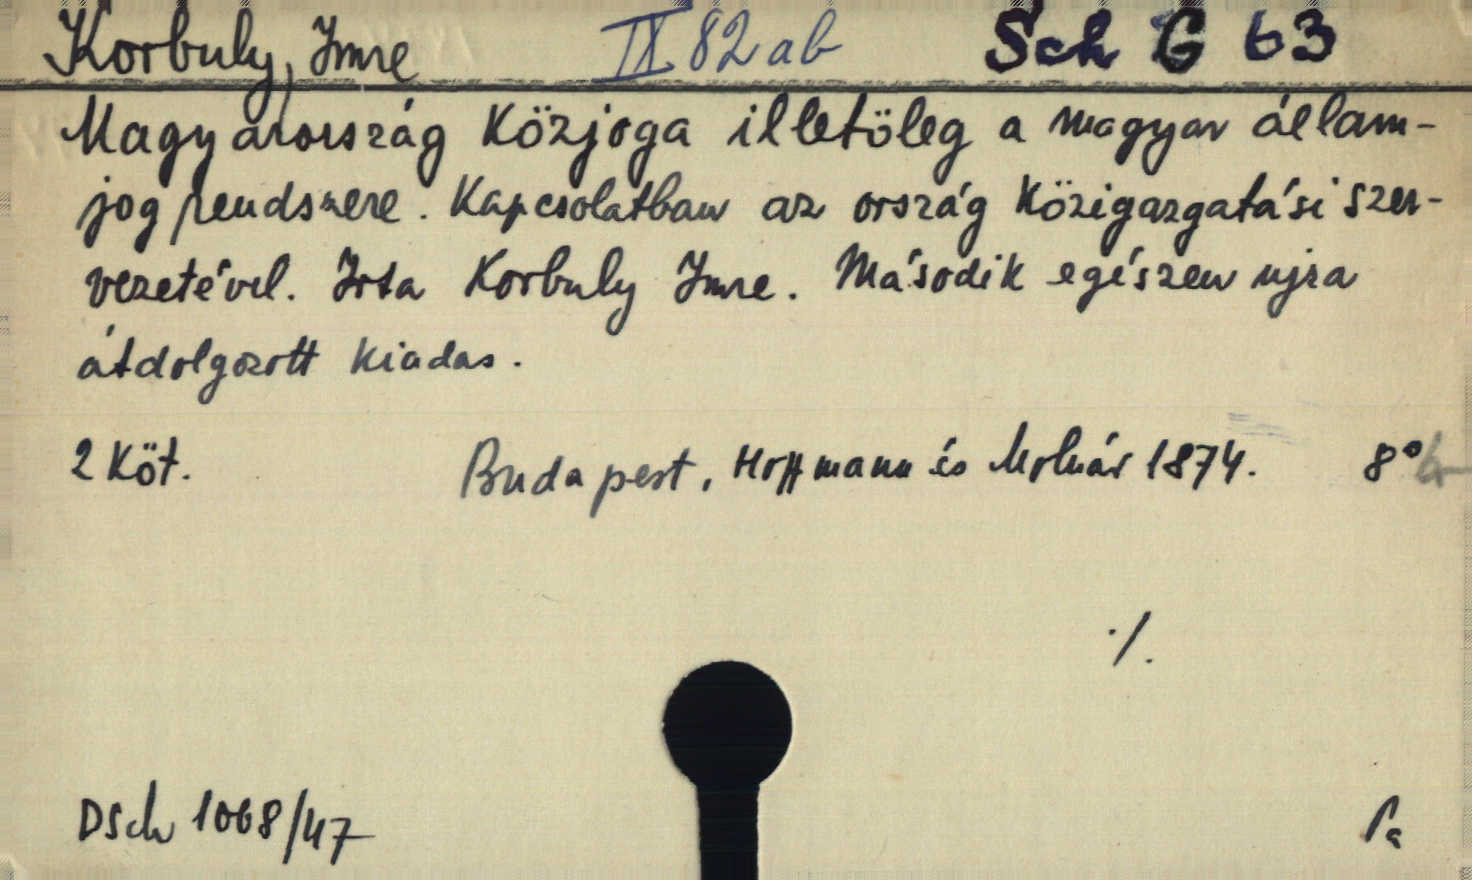 Korbuly, Imre IX 82 ab Sch G 63
Magyarország Közjoga illetöleg a magyar állam-
jog rendszere. Kapcsolatban az ország Közigazgatási szer-
vezetével. Irta Korbuly Imre. Második egészen ujra
átdolgozott kiadas.
2 Köt. Budapest, Hoffmann és Molnár 1874. 8°
./.
DSch 1068/47 Pa